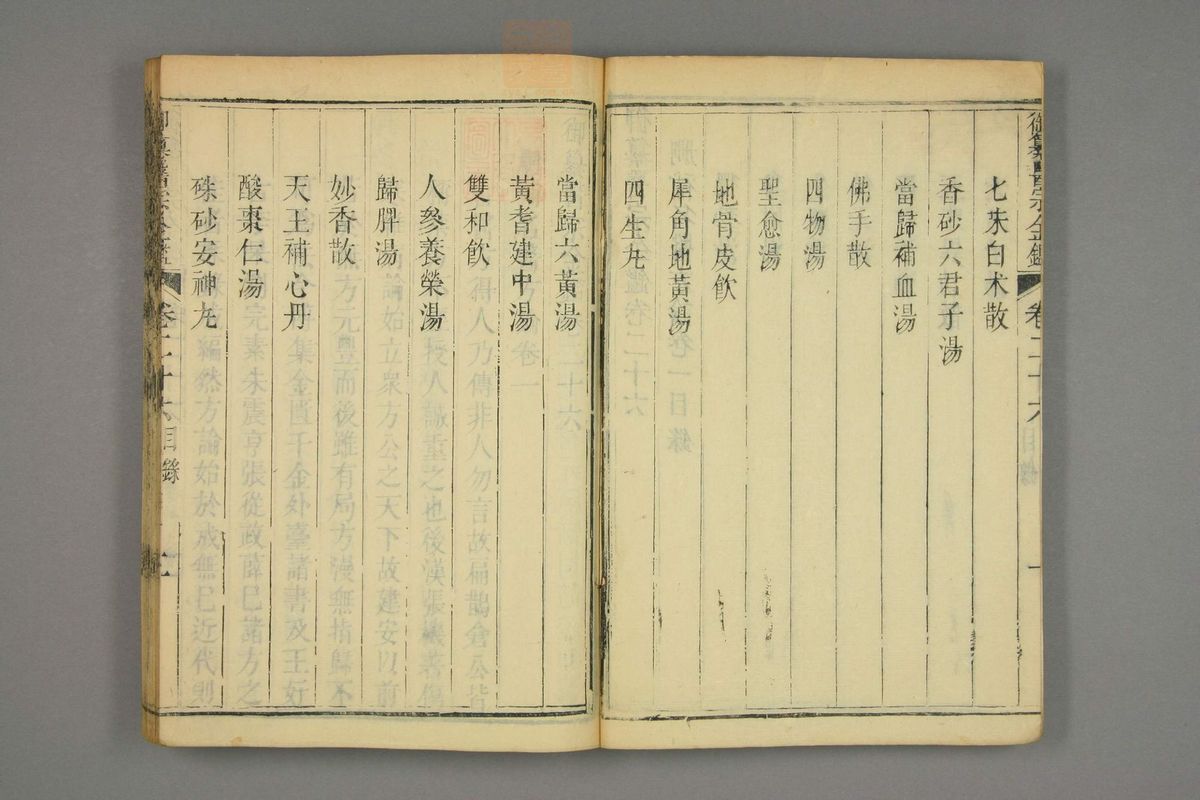 御纂醫宗金鑑 卷二十六 目錄 一
七珠白朮散
香砂六君子湯
當歸補血湯
佛手散
四物湯
聖愈湯
地骨皮飲
犀角地黃湯
四生丸
當歸六黃湯
黃耆建中湯
雙和飲
人參養榮湯
歸脾湯
妙香散
天王補心丹
酸棗仁湯
硃砂安神丸
御纂醫宗金鑑 卷二十六 目錄